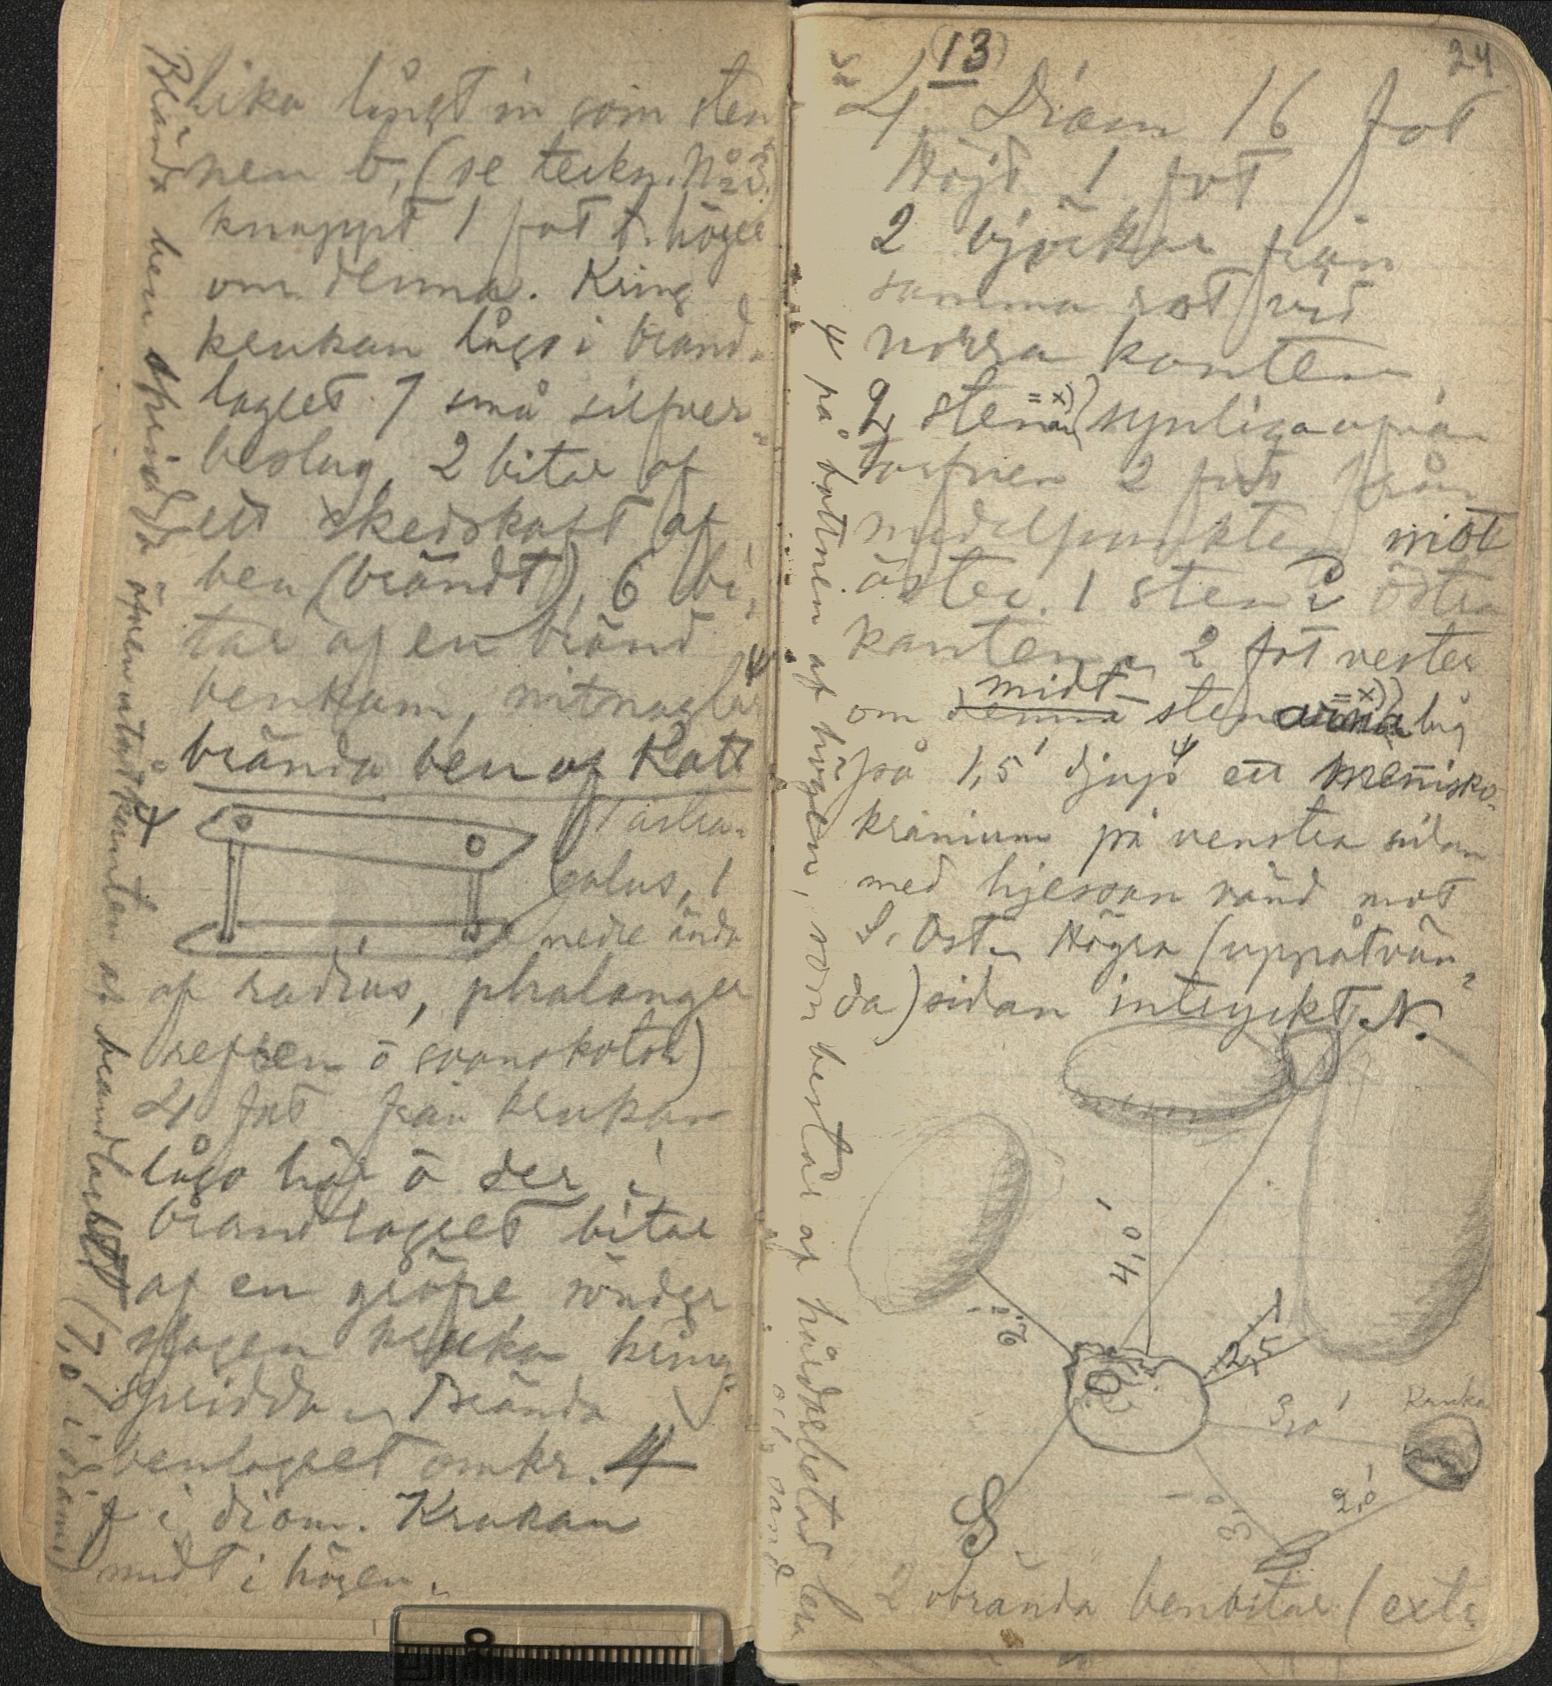 lika långt in som sten
nen b, (se teckn. No 3)
knappt 1 fot t. höger
om denna. Kring
krukan lågo i brand-
lagret 7 små silfver-
beslag, 2 bitar af
ett skedskaft af
ben (brändt), 6 bi-
tar af en bränd
benkam, nitnaglar
brända ben af Katt
(1 astra-
galus, 1
nedre ända
af radius, phalanger
refben o svanskotor)
4 fot från krukan
lågo här o der i
brandlagret bitar
af en gröfre sönder
slagen kruka kring-
spridda. Brända
benlagret omkr. 4
f i diam. Krukan
midt i högen.
Brända ben spridda äfven utåt kanten af brandlagret (7,0 i diam)
(13)
24
4. Diam 16 fot
Höjd 1 fot
2 björkar från
samma rot vid
norra kanten,
2 stenar =x) synliga ofvan
torfven 2 fot från
medelpunkten midt
öster. 1 sten i östra
kanten. 2 fot vester
om denna midt stenarna =x) låg
på 1,5' djup ett menisko-
kranium på venstra sidan
med hjessan vänd mot
S. Ost. Högra (uppåtvän-
da) sidan intryckt.
N.
4,0'
2,
2,5
3,0'
Kruka
2,0'
3,0
S
2 obrända benbitar (extr.
på bottnen af högen, som består af hårdbottnad lera
och sand